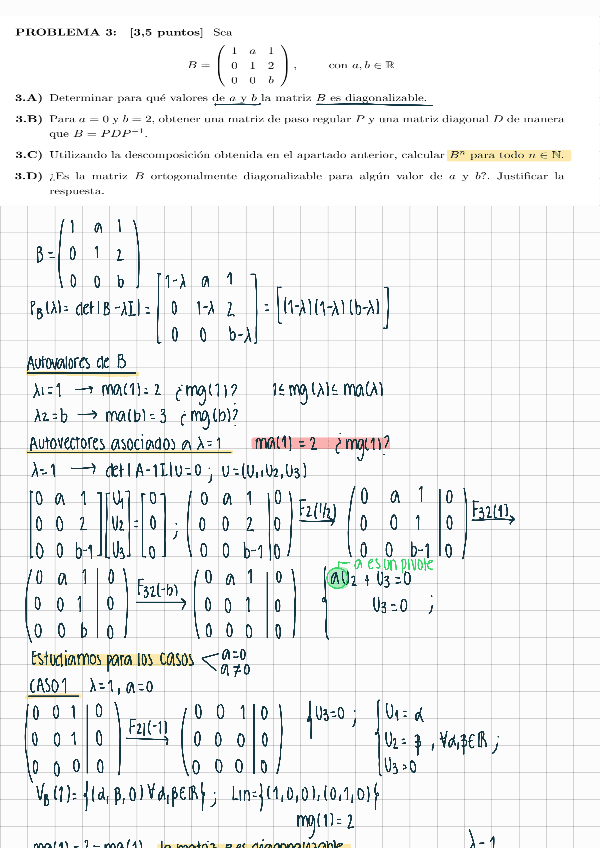 PROBLEMA 3: [3,5 puntos] Sea
B = ( 1 a 1
0 1 2
0 0 b ), con a, b ∈ ℝ
3.A) Determinar para qué valores de a y b la matriz B es diagonalizable.
3.B) Para a = 0 y b = 2, obtener una matriz de paso regular P y una matriz diagonal D de manera
que B = PDP⁻¹.
3.C) Utilizando la descomposición obtenida en el apartado anterior, calcular Bⁿ para todo n ∈ ℕ.
3.D) ¿Es la matriz B ortogonalmente diagonalizable para algún valor de a y b?. Justificar la
respuesta.
B = ( 1 a 1
0 1 2
0 0 b )
P_B(λ) = det|B-λI| = [ 1-λ a 1
0 1-λ 2
0 0 b-λ ] = [(1-λ)(1-λ)(b-λ)]
Autovalores de B
λ1=1 → ma(1)=2 ¿mg(1)? 1≤mg(λ)≤ma(λ)
λ2=b → ma(b)=3 ¿mg(b)?
Autovectores asociados a λ=1 ma(1)=2 ¿mg(1)?
λ=1 → det|A-1I|U=0 ; U=(U1,U2,U3)
[ 0 a 1
0 0 2
0 0 b-1 ] [ U1
U2
U3 ] = [ 0
0
0 ] ; ( 0 a 1 | 0
0 0 2 | 0
0 0 b-1 | 0 ) F2(1/2) → ( 0 a 1 | 0
0 0 1 | 0
0 0 b-1 | 0 ) F32(1) →
a es un pivote
( 0 a 1 | 0
0 0 1 | 0
0 0 b | 0 ) F32(-b) → ( 0 a 1 | 0
0 0 1 | 0
0 0 0 | 0 ) { aU2 + U3=0
U3=0 ;
Estudiamos para los casos < a=0
a≠0
CASO 1 λ=1, a=0
( 0 0 1 | 0
0 0 1 | 0
0 0 0 | 0 ) F21(-1) → ( 0 0 1 | 0
0 0 0 | 0
0 0 0 | 0 ) { U3=0 ; { U1=α
U2=β , ∀α,β∈ℝ ;
U3=0
V_B(1)={(α,β,0) ∀α,β∈ℝ} ; Lin={(1,0,0),(0,1,0)}
mg(1)=2
mg(1)=2=ma(1) la matriz B es diagonalizable λ=1